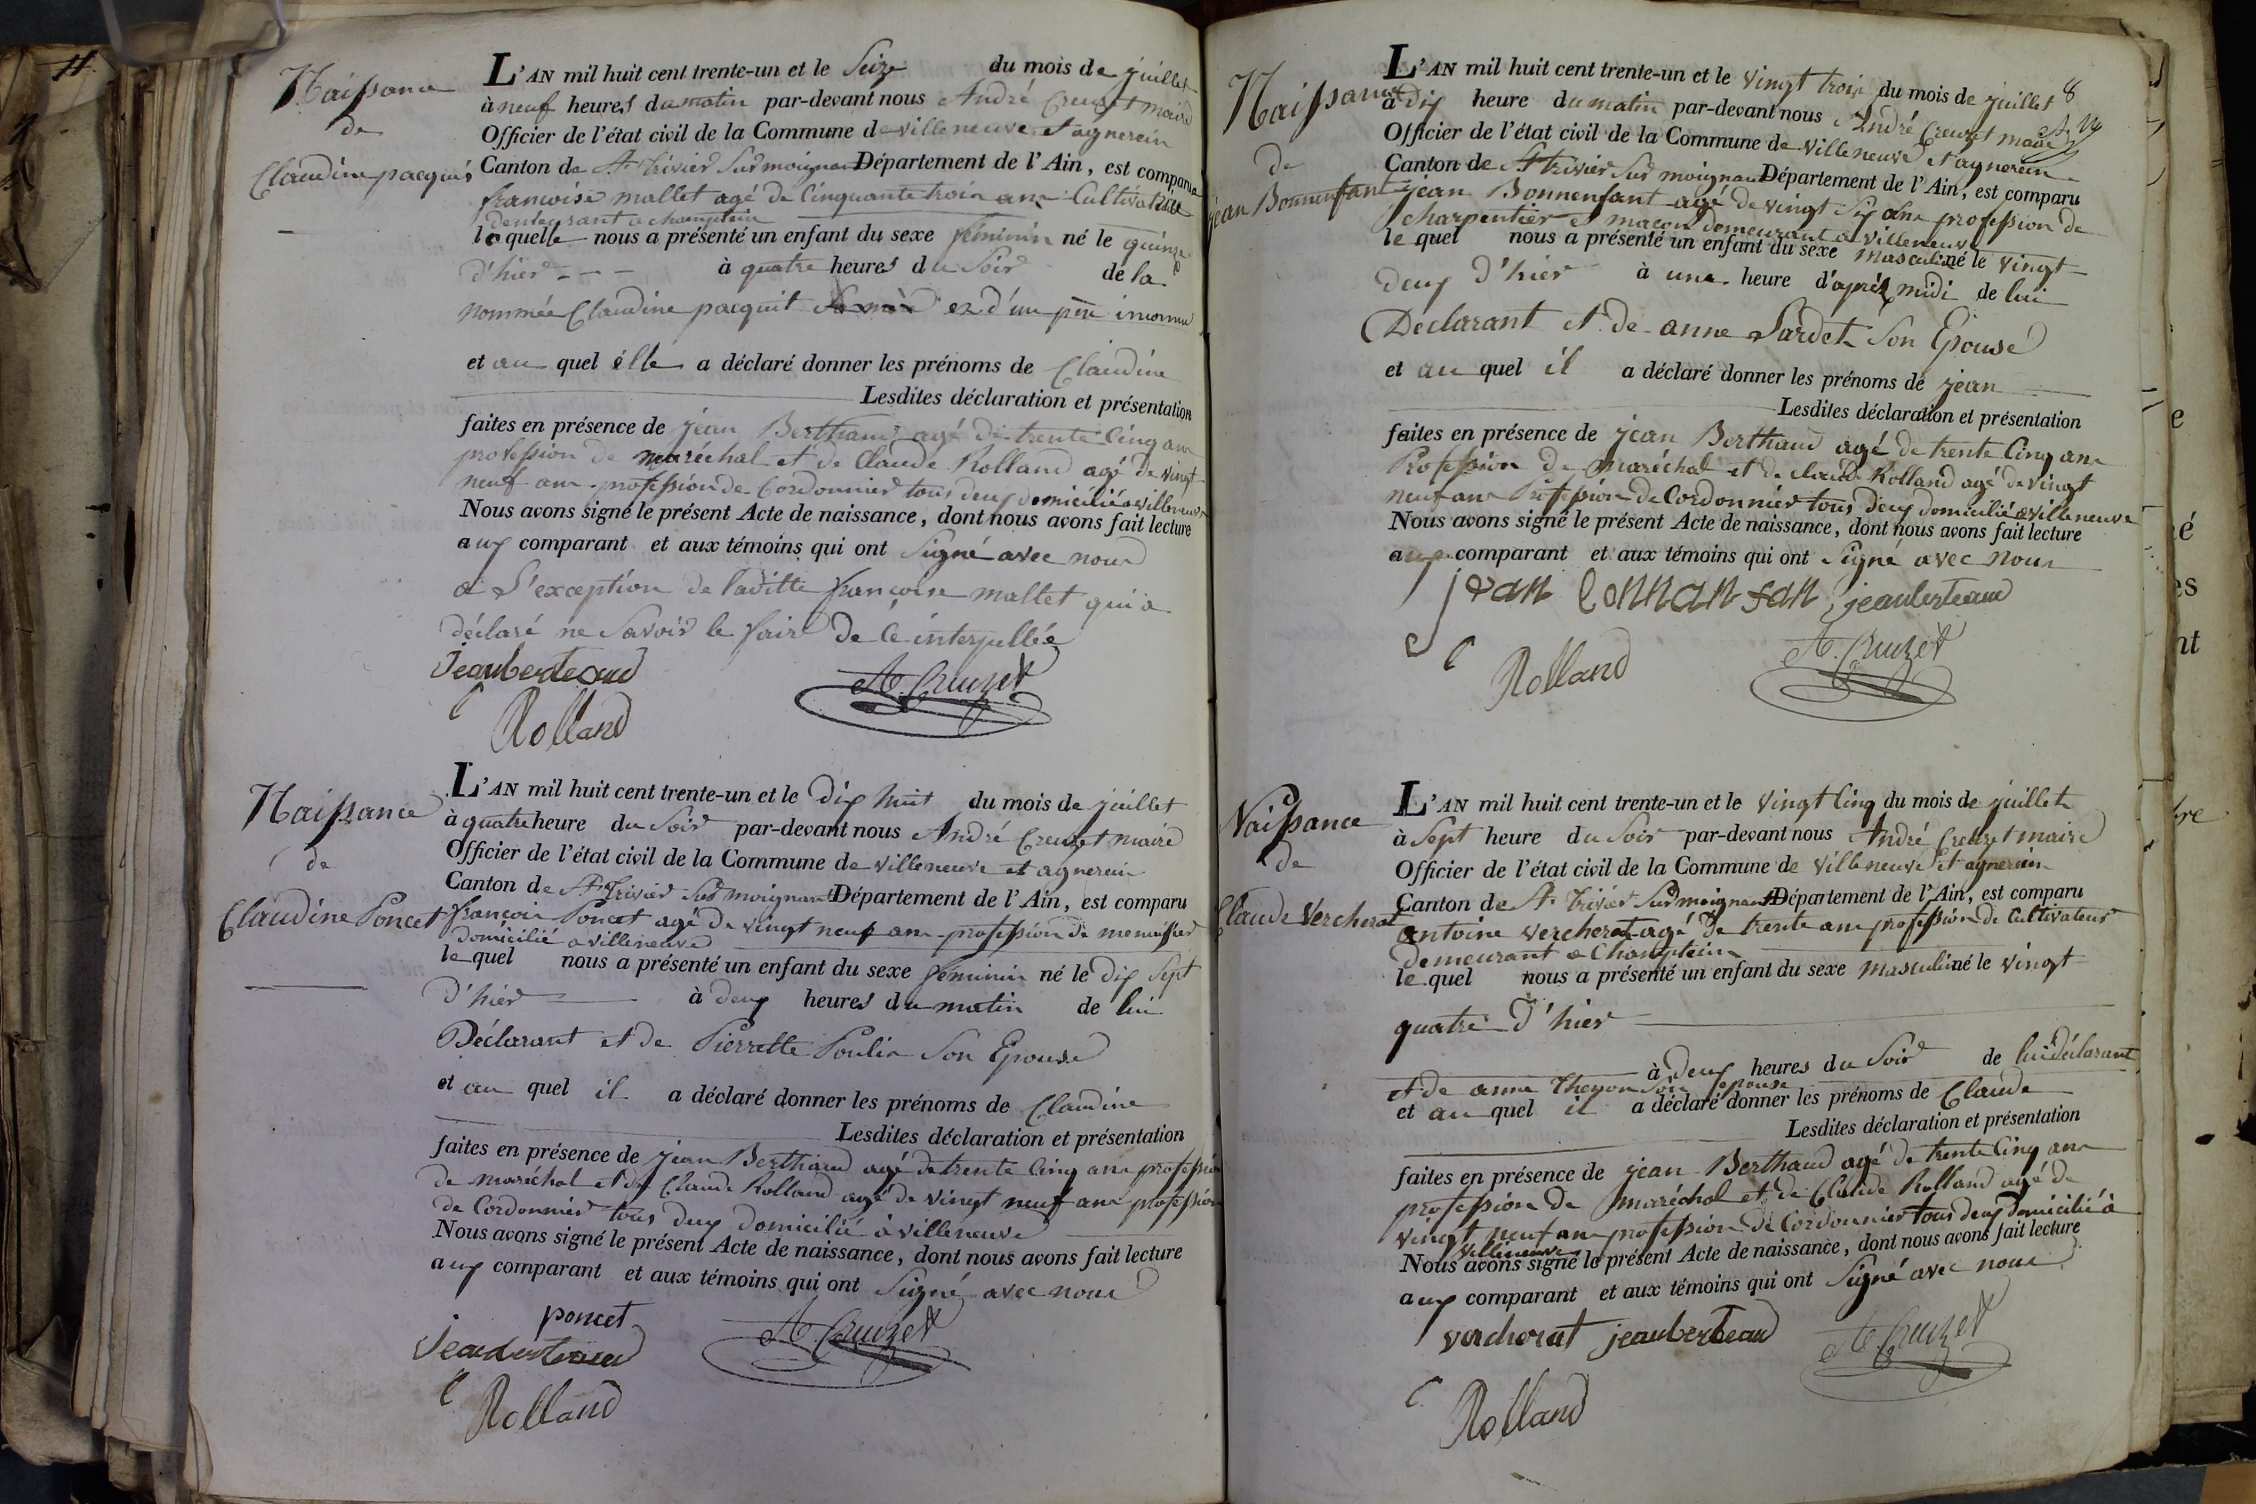 11.
Naissance
de
Claudine pacquis
L'AN mil huit cent trente-un et le Seize du mois de juillet
à neuf heures du matin par-devant nous André Creuzet maire
Officier de l'état civil de la Commune de villeneuve et agnerein
Canton de St trivier Sur moignans Département de l'Ain, est comparue
francoise mallet agé de Cinquante trois ans Cultivatrice
demeurant a champtein
la quelle nous a présenté un enfant du sexe féminin né le quinze
d'hier à quatre heures du Soir de la
nommée Claudine pacquit Sa mère et d'un père inconnu
et au quel élle a déclaré donner les prénoms de Claudine
Lesdites déclaration et présentation
faites en présence de jéan Berthaud agé de trente Cinq ans
profession de maréchal et de Claude Rolland agé de vingt
neuf ans profession de Cordonnier tous deux domicilié a villeneuve
Nous avons signé le présent Acte de naissance, dont nous avons fait lecture
aux comparant et aux témoins qui ont Signé avec nous
a L'exception de laditte françoise mallet qui a
déclaré ne Savoir le fair de Cé interpellée
jeanberteaud A. Creuzet
C Rolland
Naissance
de
Claudine Poncet
L'AN mil huit cent trente-un et le Dix huit du mois de juillet
à quatre heure du Soir par-devant nous André Creuzet maire
Officier de l'état civil de la Commune de villeneuve et agnerein
Canton de St Trivier Sur moignans Département de l'Ain, est comparu
françois Poncet agé de vingt neuf ans profession de menuisier
domicilié a villeneuve
le quel nous a présenté un enfant du sexe féminin né le dix Sept
d'hier à deux heures du matin de lui
Déclarant et de Pierrette Poulin Son Epouse
et au quel il a déclaré donner les prénoms de Claudine
Lesdites déclaration et présentation
faites en présence de jean Berthaud agé de trente Cinq ans profession
de maréchal et de Claude Rolland agé de vingt neuf ans profession
de Cordonnier tous deux domicilié à villeneuve
Nous avons signé le présent Acte de naissance, dont nous avons fait lecture
aux comparant et aux témoins qui ont Signé avec nous
poncet A. Creuzet
jeanberteaud
C Rolland
8
Naissance
de
jéan Bonnenfant
L'AN mil huit cent trente-un et le vingt trois du mois de juillet
à Dix heure du matin par-devant nous André Creuzet maire
Officier de l'état civil de la Commune de villeneuve et agnerein
Canton de St trivier Sur moignans Département de l'Ain, est comparu
jéan Bonnenfant agé de vingt Six ans profession de
charpentier et maçon demeurant a villeneuve
le quel nous a présenté un enfant du sexe masculin né le vingt
deux d'hier à une heure d'après midi de lui
Declarant et de anne Sardet Son Epouse
et au quel il a déclaré donner les prénoms de jean
Lesdites déclaration et présentation
faites en présence de jean Berthaud agé de trente Cinq ans
Profession de maréchal et de claude Rolland agé de vingt
neuf ans Profession de Cordonnier tous deux domicilié a villeneuve
Nous avons signé le présent Acte de naissance, dont nous avons fait lecture
aux comparant et aux témoins qui ont Signé avec nous
jean bonnanfan jeanberteaud
C Rolland A. Creuzet
Naissance
de
Claude Vercherat
L'AN mil huit cent trente-un et le Vingt Cinq du mois de juillet
à Sept heure du Soir par-devant nous André Creuzet maire
Officier de l'état civil de la Commune de villeneuve et agnerein
Canton de St Trivier Sur moignans Département de l'Ain, est comparu
antoine vercherat agé de trente ans profession de Cultivateur
demeurant a Champtein
le quel nous a présenté un enfant du sexe masculin né le vingt
quatre d'hier
à deux heures du Soir de lui déclarant
et de anne Thenon Son epouse
et au quel il a déclaré donner les prénoms de Claude
Lesdites déclaration et présentation
faites en présence de jean Berthaud agé de trente Cinq ans
profession de maréchal et de Claude Rolland agé de
vingt neuf ans profession de Cordonnier tous deux domicilié à
villeneuve
Nous avons signé le présent Acte de naissance, dont nous avons fait lecture
aux comparant et aux témoins qui ont Signé avec nous
vercherat jeanberteaud A. Creuzet
C Rolland